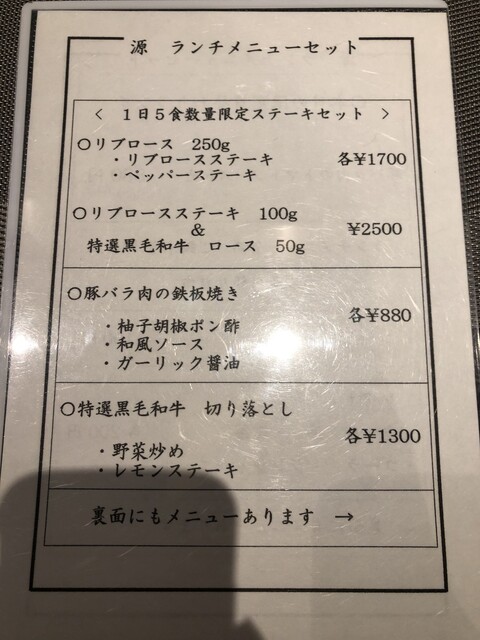 源　ランチメニューセット
＜　１日５食数量限定ステーキセット　＞
〇リブロース　250g
・リブロースステーキ　各¥1700
・ペッパーステーキ
〇リブロースステーキ　100g
＆　¥2500
特選黒毛和牛　ロース　50g
〇豚バラ肉の鉄板焼き
各¥880
・柚子胡椒ポン酢
・和風ソース
・ガーリック醤油
〇特選黒毛和牛　切り落とし
各¥1300
・野菜炒め
・レモンステーキ
裏面にもメニューあります　→